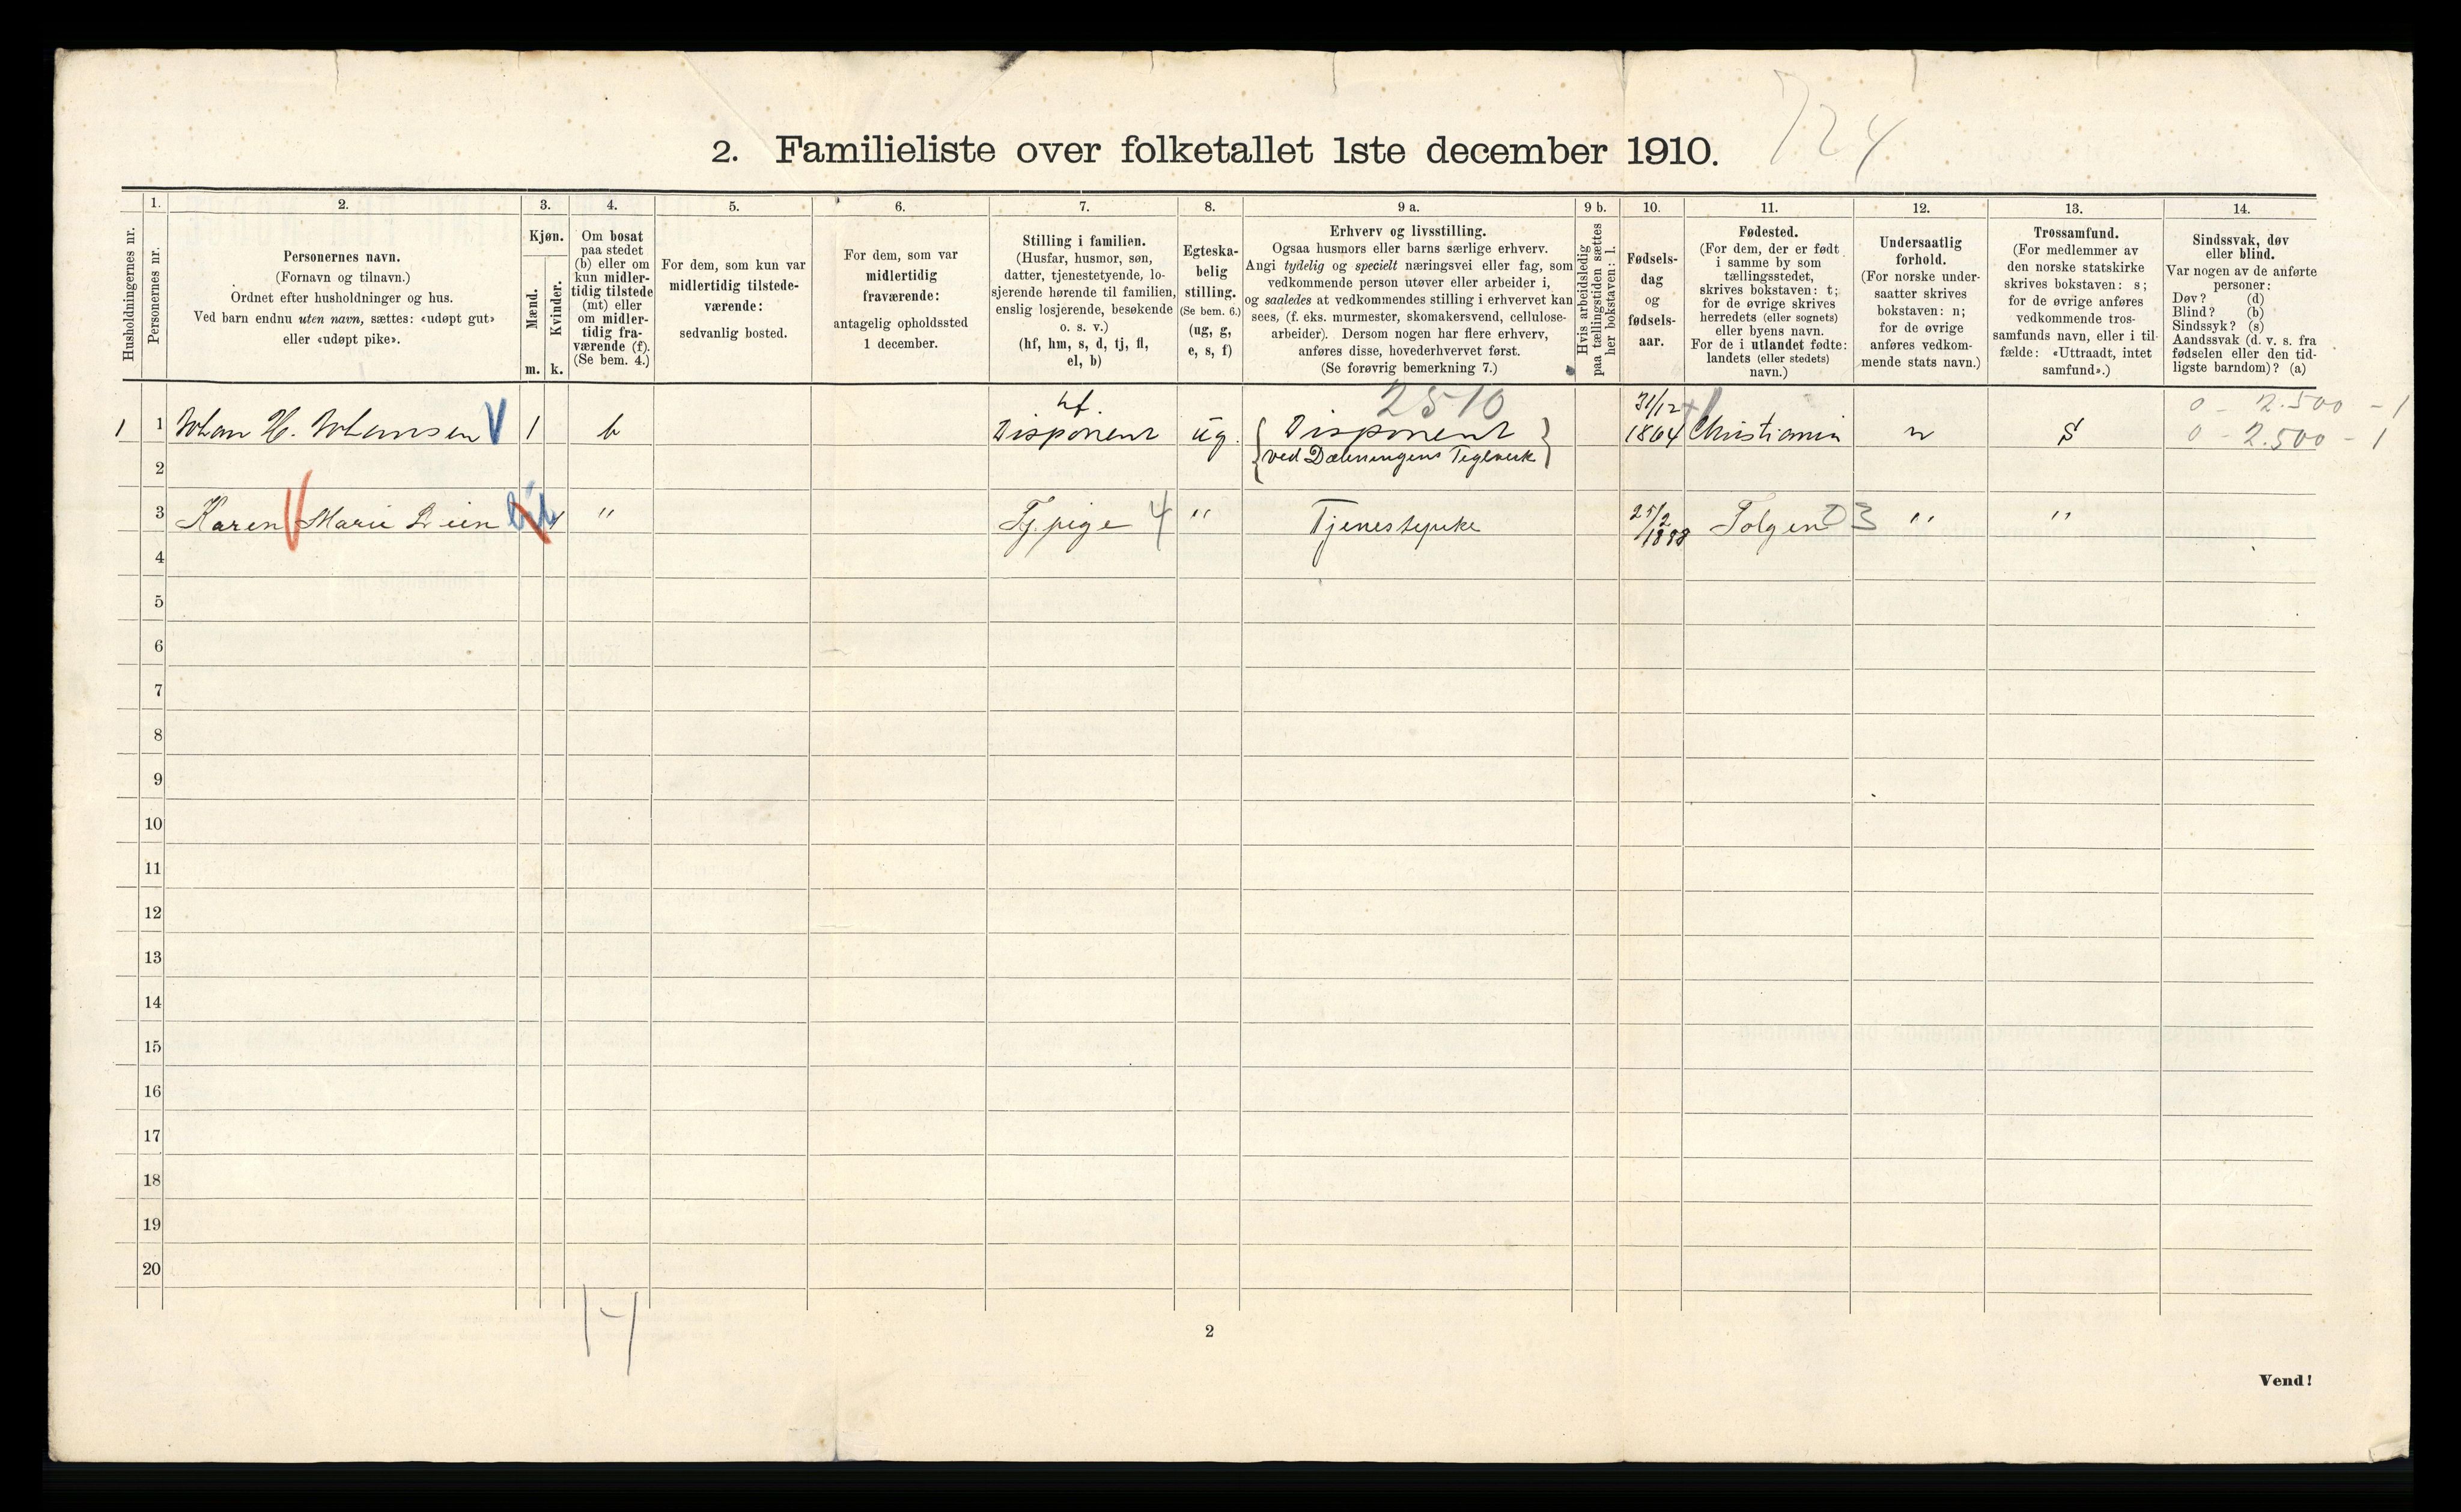 724
2. Familieliste over folketallet 1ste december 1910.
Husholdningernes nr.
1.
Personernes nr.
2.
Personernes navn.
(Fornavn og tilnavn.)
Ordnet efter husholdninger og hus.
Ved barn endnu uten navn, sættes: «udøpt gut»
eller «udøpt pike».
3.
Kjøn.
Mænd.
Kvinder.
m. k.
4.
Om bosat
paa stedet
(b) eller om
kun midler-
tidig tilstede
(mt) eller
om midler-
tidig fra-
værende (f).
(Se bem. 4.)
5.
For dem, som kun var
midlertidig tilstede-
værende:
sedvanlig bosted.
6.
For dem, som var
midlertidig
fraværende:
antagelig opholdssted
1 december.
7.
Stilling i familien.
(Husfar, husmor, søn,
datter, tjenestetyende, lo-
sjerende hørende til familien,
enslig losjerende, besøkende
o. s. v.)
(hf, hm, s, d, tj, fl,
el, b)
8.
Egteska-
belig
stilling.
(Se bem. 6.)
(ug, g,
e, s, f)
9 a.
Erhverv og livsstilling.
Ogsaa husmors eller barns særlige erhverv.
Angi tydelig og specielt næringsvei eller fag, som
vedkommende person utøver eller arbeider i,
og saaledes at vedkommendes stilling i erhvervet kan
sees, (f. eks. murmester, skomakersvend, cellulose-
arbeider). Dersom nogen har flere erhverv,
anføres disse, hovederhvervet først.
(Se forøvrig bemerkning 7.)
9 b.
Hvis arbeidsledig
paa tællingstiden sættes
her bokstaven: l.
10.
Fødsels-
dag
og
fødsels-
aar.
11.
Fødested.
(For dem, der er født
i samme by som
tællingsstedet,
skrives bokstaven: t;
for de øvrige skrives
herredets (eller sognets)
eller byens navn.
For de i utlandet fødte:
landets (eller stedets)
navn.)
12.
Undersaatlig
forhold.
(For norske under-
saatter skrives
bokstaven: n;
for de øvrige
anføres vedkom-
mende stats navn.)
13.
Trossamfund.
(For medlemmer av
den norske statskirke
skrives bokstaven: s;
for de øvrige anføres
vedkommende tros-
samfunds navn, eller i til-
fælde: «Uttraadt, intet
samfund».)
14.
Sindssvak, døv
eller blind.
Var nogen av de anførte
personer:
Døv? (d)
Blind? (b)
Sindssyk? (s)
Aandssvak (d. v. s. fra
fødselen eller den tid-
ligste barndom)? (a)
hf. 2510 31/12 0 - 2.500 - 1
1 1 Johan H. Johansen V 1 b Disponent ug. Disponent 1864 Christiania n S 0 - 2.500 - 1
ved Dælenengens Teglverk
2
3 Karen Marie Lien 1 " Tj. pige 4 " Tjenestepike 25/2 1888 Tolgen 03 " "
4
5
6
7
8
9
10
11
12
13
14
15
16
17
18
19
20
1-1
2
Vend!